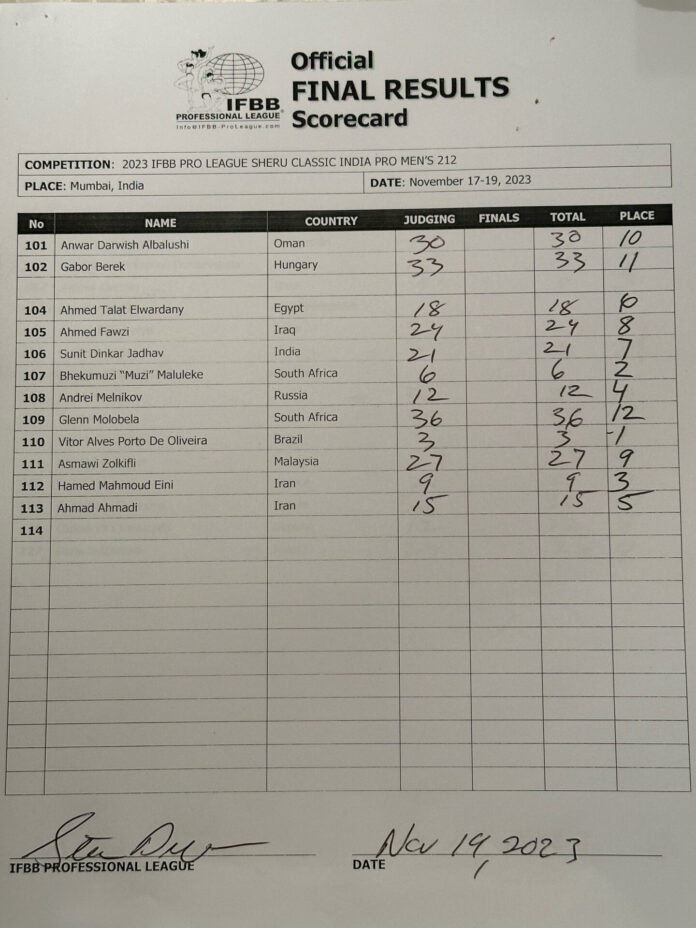 Official
FINAL RESULTS
Scorecard
IFBB
PROFESSIONAL LEAGUE
Info@IFBB-ProLeague.com
COMPETITION: 2023 IFBB PRO LEAGUE SHERU CLASSIC INDIA PRO MEN'S 212
PLACE: Mumbai, India DATE: November 17-19, 2023
No NAME COUNTRY JUDGING FINALS TOTAL PLACE
101 Anwar Darwish Albalushi Oman 30 30 10
102 Gabor Berek Hungary 33 33 11
104 Ahmed Talat Elwardany Egypt 18 18 6
105 Ahmed Fawzi Iraq 24 24 8
106 Sunit Dinkar Jadhav India 21 21 7
107 Bhekumuzi "Muzi" Maluleke South Africa 6 6 2
108 Andrei Melnikov Russia 12 12 4
109 Glenn Molobela South Africa 36 36 12
110 Vitor Alves Porto De Oliveira Brazil 3 3 1
111 Asmawi Zolkifli Malaysia 27 27 9
112 Hamed Mahmoud Eini Iran 9 9 3
113 Ahmad Ahmadi Iran 15 15 5
114
Nov 19, 2023
IFBB PROFESSIONAL LEAGUE DATE